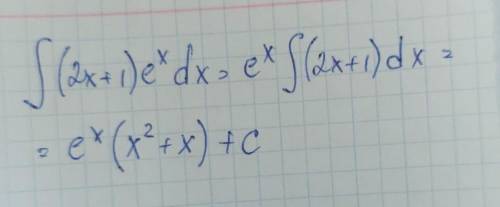 ∫(2x+1)eˣdx = eˣ∫(2x+1)dx =
= eˣ(x²+x)+c